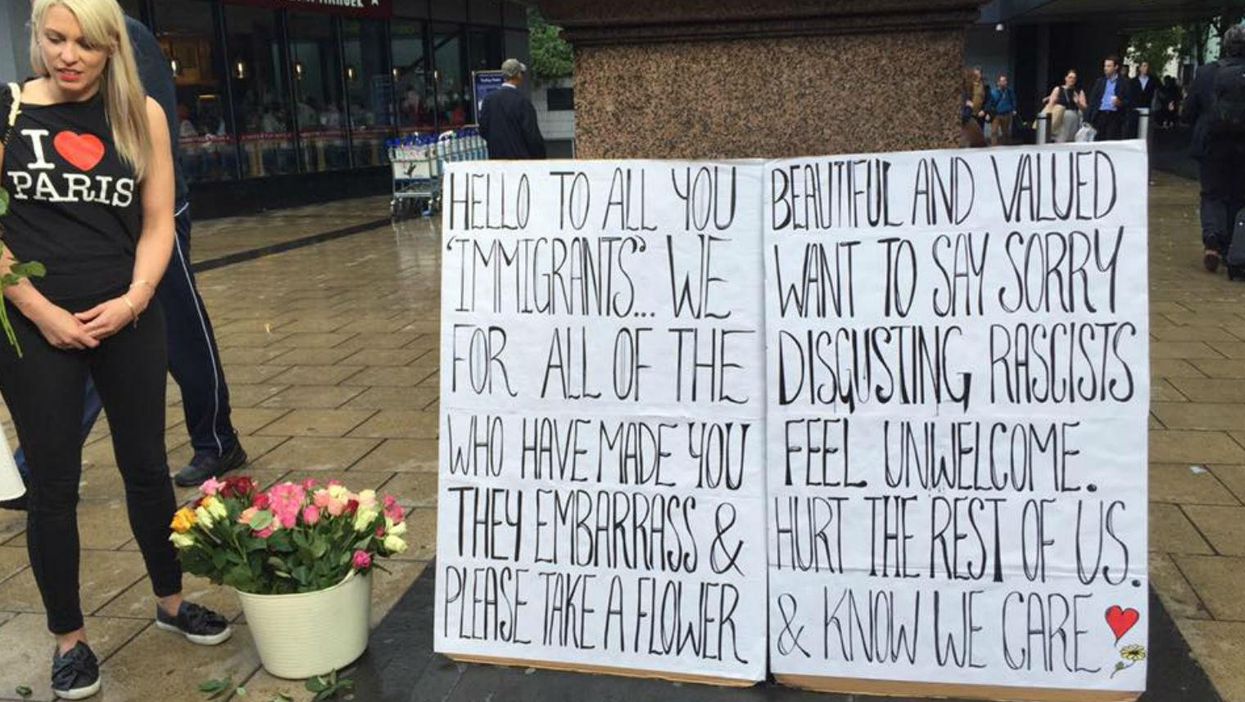 I
PARIS
HELLO TO ALL YOU BEAUTIFUL AND VALUED
"IMMIGRANTS"... WE WANT TO SAY SORRY
FOR ALL OF THE DISGUSTING RASCISTS
WHO HAVE MADE YOU FEEL UNWELCOME.
THEY EMBARRASS & HURT THE REST OF US.
PLEASE TAKE A FLOWER & KNOW WE CARE